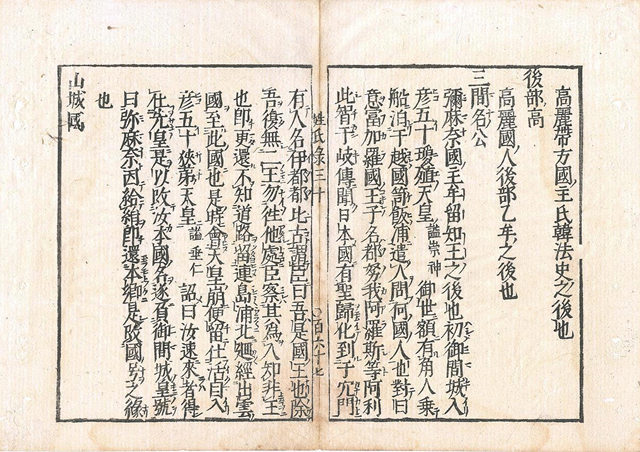 高麗帶方國主氏韓法史之後也
後部高
高麗國人後部乙牟之後也
三間名公
彌麻奈國主牟留知王之後也初御間城入
彦五十瓊殖天皇 謚崇神 御世額有角人乗
船泊于越國笥飯浦遣人問何國人也對曰
意富加羅國王子名都努我阿羅斯等阿利
此智干岐傳聞日本國有聖歸化到于穴門
姓氏録三十 百六十七
有人名伊都都比古謂臣曰吾是國王也除
吾復無二王勿往他處臣察其爲人知非王
也即更還不知道路留連島浦北廻經出雲
國至此國也是時會天皇崩便留仕活目入
彦五十狹第天皇 謚垂仁 詔曰汝速來者得
仕先皇是以改汝本國名遂負御間城皇號
曰弥麻奈因給絹即還本郷是改國号之縁
也
山城國